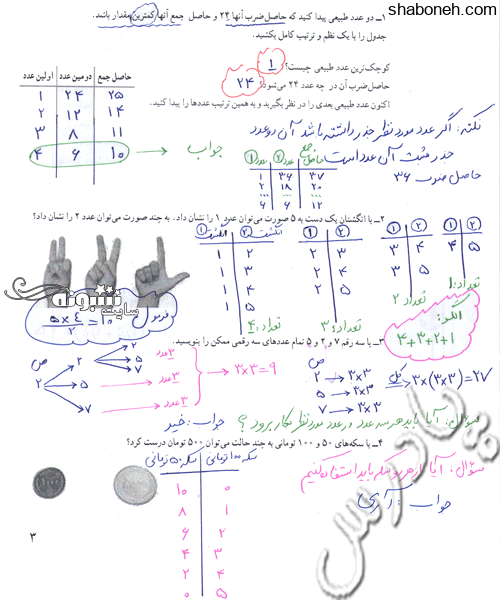 shaboneh.com
۱ــ دو عدد طبیعی پیدا کنید که حاصل ضرب آنها ۲۴ و حاصل جمع آنها کمترین مقدار باشد.
جدول را با یک نظم و ترتیب کامل بکشید.
کوچک‌ترین عدد طبیعی چیست؟ ۱
حاصل‌ضرب آن در چه عدد ۲۴ می‌شود؟ ۲۴
اکنون عدد طبیعی بعدی را در نظر بگیرید و به همین ترتیب عددها را پیدا کنید.
اولین عدد دومین عدد حاصل جمع
۱ ۲۴ ۲۵
۲ ۱۲ ۱۴
۳ ۸ ۱۱
۴ ۶ ۱۰
جواب
نکته: اگر عدد مورد نظر جذر داشته باشد آن دو عدد
جذر مثبت آن عدد است
حاصل ضرب ۳۶
عدد ۱ عدد ۲ حاصل جمع
۱ ۳۶ ۳۷
۲ ۱۸ ۲۰
... ... ...
۶ ۶ ۱۲
۲ــ با انگشتان یک دست به ۵ صورت می‌توان عدد ۱ را نشان داد. به چند صورت می‌توان عدد ۲ را نشان داد؟
انگشت ۱ انگشت ۲
۱ ۲
۱ ۳
۱ ۴
۱ ۵
تعداد: ۴
۱ ۲
۲ ۳
۲ ۴
۲ ۵
تعداد: ۳
۱ ۲
۳ ۴
۳ ۵
تعداد: ۲
۱ ۲
۴ ۵
تعداد: ۱
الگو:
۴+۳+۲+۱
فرمول
۵×۴/۲ = ۱۰
سایت شبونه
۳ــ با سه رقم ۷ و ۲ و ۵ تمام عددهای سه رقمی ممکن را بنویسید.
ص
۲ ۲ ۳عدد
۵ ۳عدد
۷ ۳عدد
۲
۵
۷
۳×۳=۹
ص
۲ → ۳×۳
۵ → ۳×۳
۷ → ۳×۳
کل
۳×(۳×۳)=۲۷
سؤال: آیا باید هر سه عدد در عدد مورد نظر تکرار برود؟
جواب: خیر
۴ــ با سکه‌های ۵۰ و ۱۰۰ تومانی به چند حالت می‌توان ۵۰۰ تومان درست کرد؟
سؤال: آیا از هر دو سکه باید استفاده کنیم
جواب: آری
سکه ۵۰ تومانی سکه ۱۰۰ تومانی
۱۰ ۰
۸ ۱
۶ ۲
۴ ۳
۲ ۴
۰ ۵
پیادرس
۳